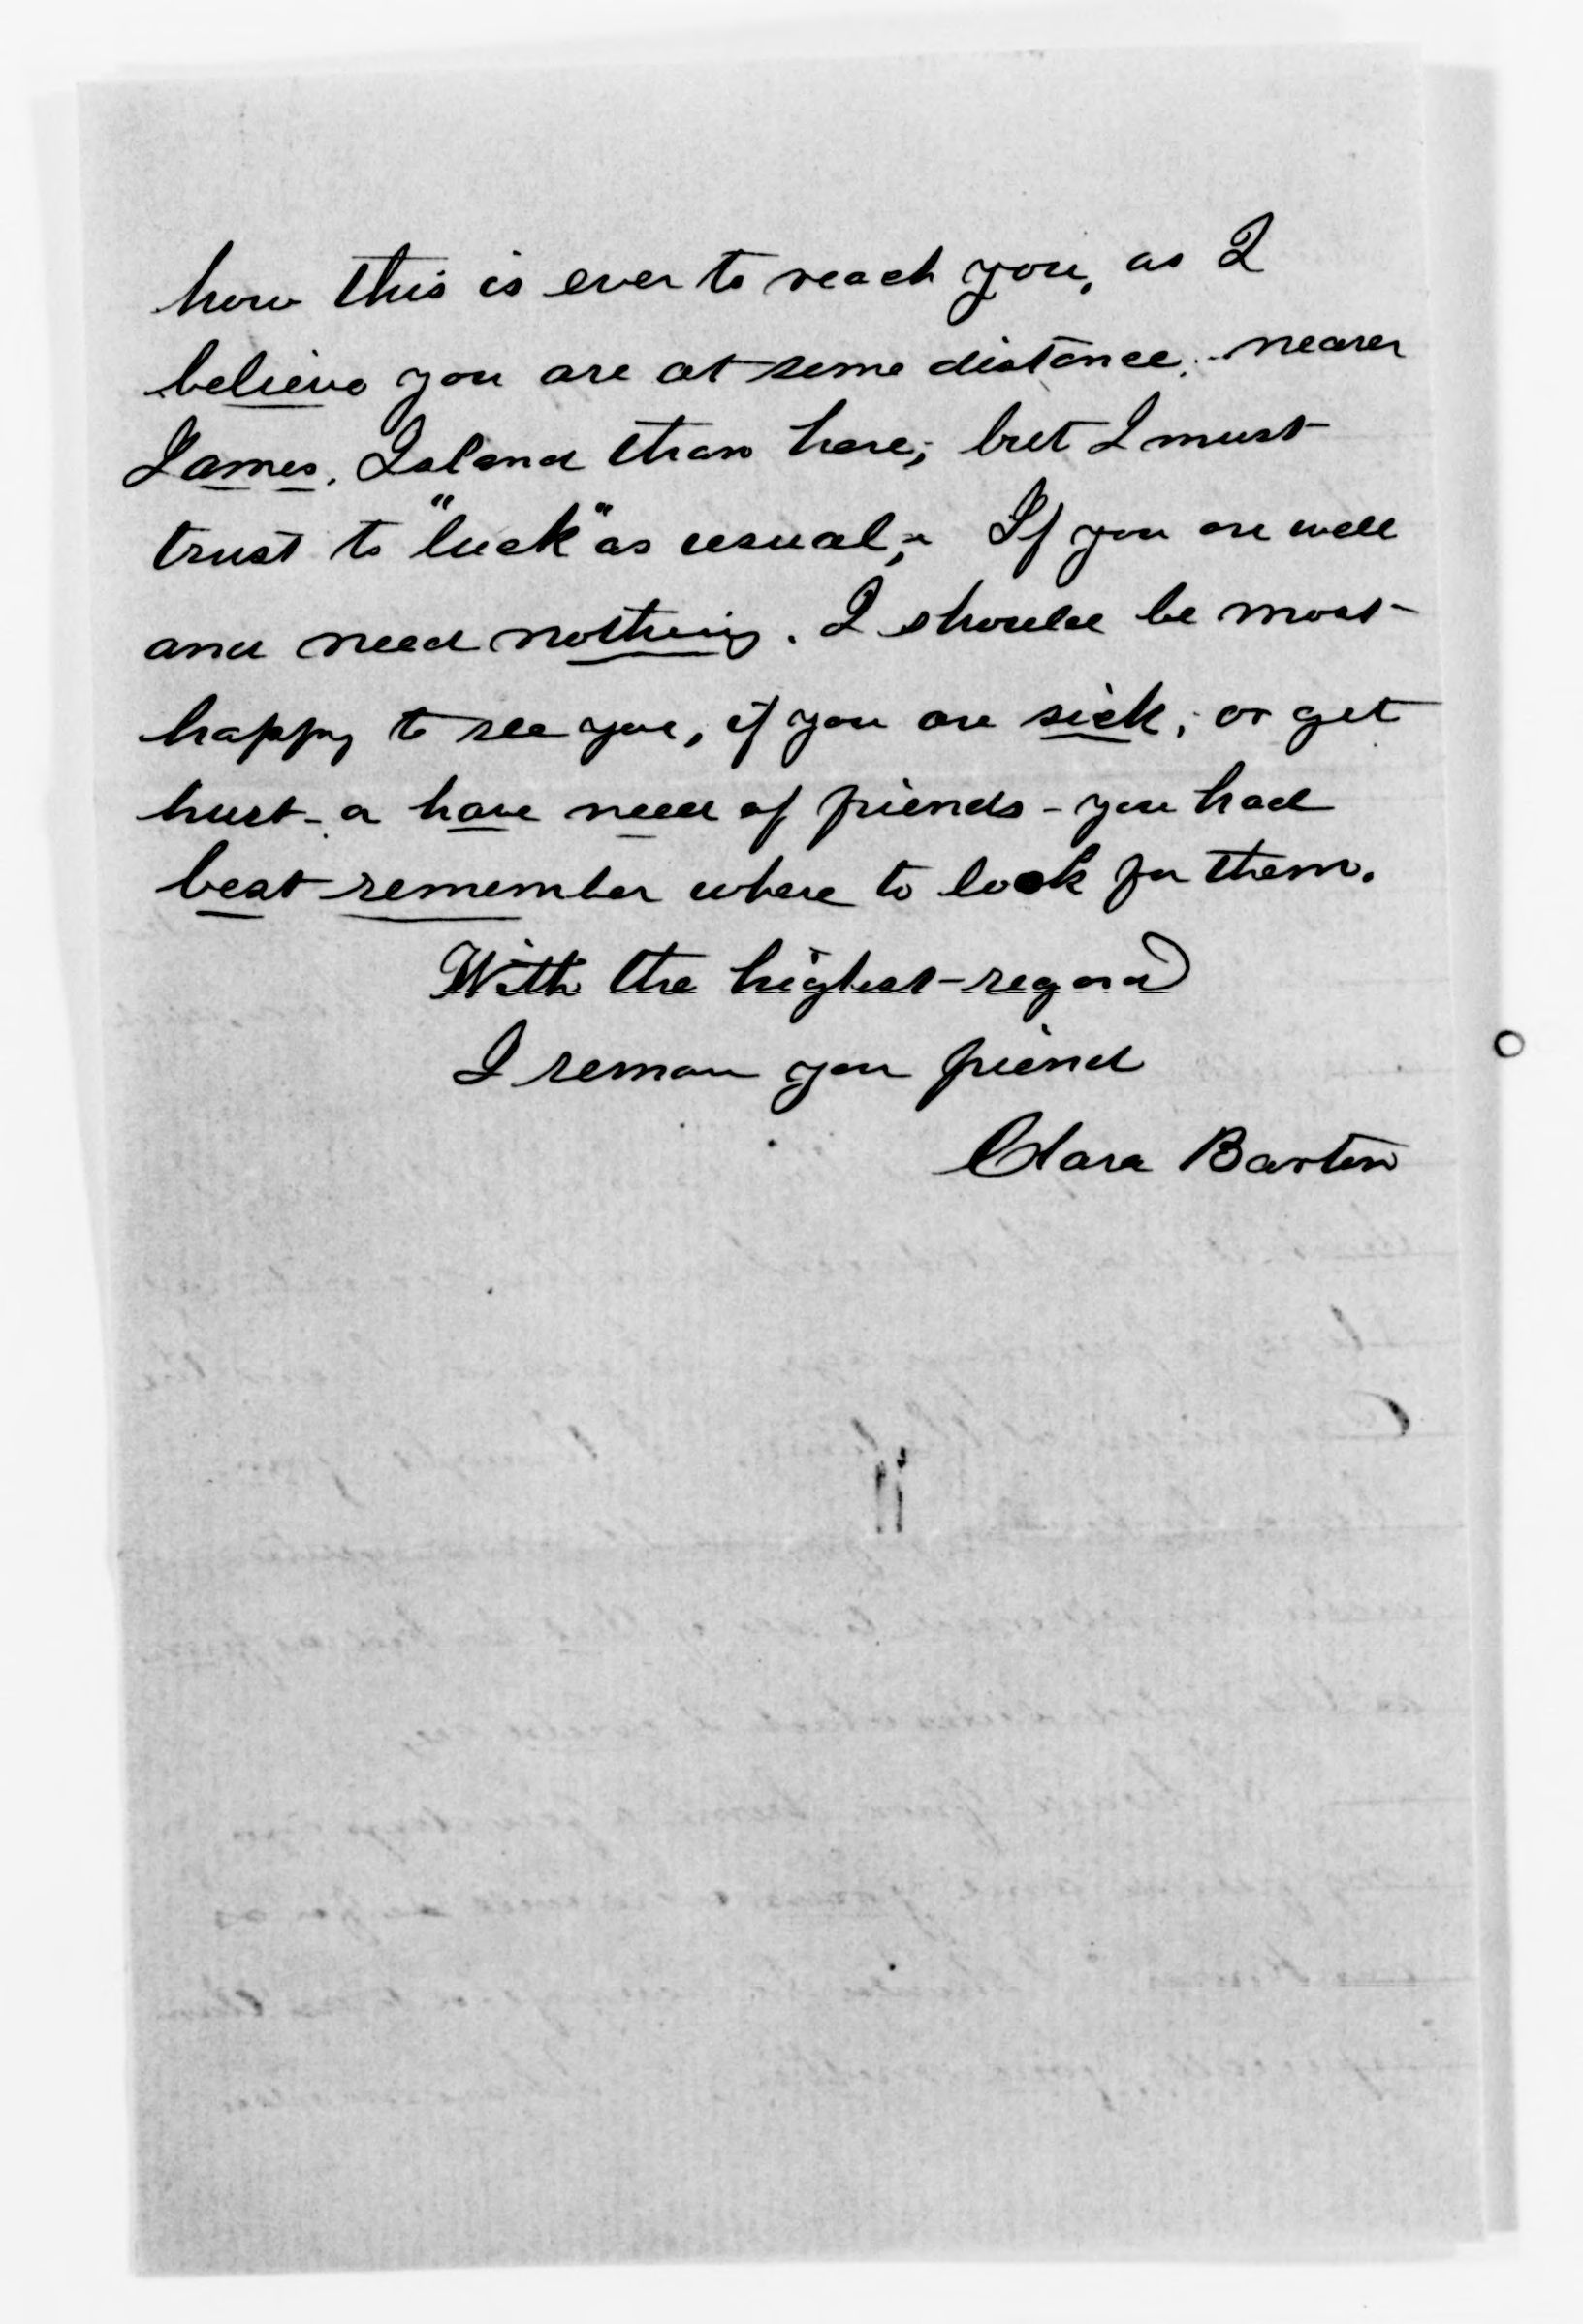 how this is ever to reach you, as I
believe you are at some distance, nearer
James, Island than here; but I must
trust to "luck" as usual; If you are well
and need nothing. I should be most
happy to see you, if you are sick, or get
hurt - or have need of friends - you had
best remember where to look for them.
With the highest regard
I remain your friend
Clara Barton